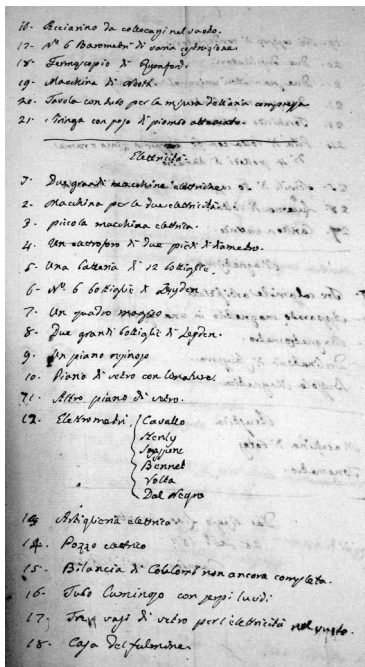 16- Acciarino da collocarsi nel vuoto.
17- N.º 6 Barometri di varia costruzione.
18- Termoscopio di Rumford.
19- Macchina di
20- Tavola con tubo per la misura dell'aria compressa
21- Siringa con peso di piombo attaccato.
Elettricità.
1- Due grandi macchine elettriche
2- Macchina per le due elettricità.
3- piccola macchina elettrica.
4- Un elettroforo di due piedi di diametro.
5- Una batteria di 12 bottiglie.
6- N.º 6 bottiglie di Leyden
7- Un quadro magico
8- Due grandi bottiglie di Leyden.
9- Un piano resinoso
10- Piano di vetro con
11- Altro piano di vetro.
12. Elettrometri Cavallo
Henly
Saussure
Bennet
Volta
Dal Negro
13- Artiglieria elettrica
14. Pozzo elettrico
15- Bilancia di Colomb non ancora completa.
16- Tubo luminoso con
17- Tre vasi di vetro per l'elettricità nel vuoto.
18- Casa del fulmine.